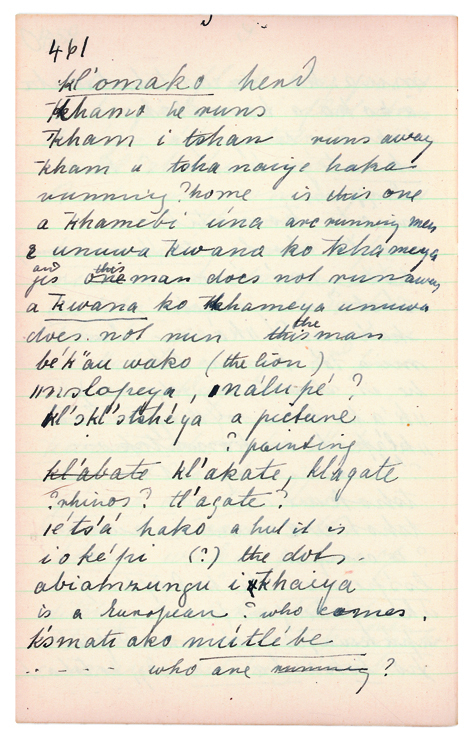 461
kl'omako herd
khamo he runs
kham i tshan runs away
kham a tshanaiye haka
running ? home is this one
a khamebi úna are running men
& unuwa kwana ko khameya
and this
yis one man does not run away
a kwana ko khameya unuwa
the
does not run this man
bék"au wako (the lion)
, nálupé ?
kl'skl'stshéya a picture
? painting
kl'abate kl'akate, klagate
? rhinos? tl'agate?
iéts'á hako a hut it is
i o képi (?) the dots.
abiamzungu i khaiya
is a European ? who comes.
k'smati ako muítlébe
.. - - - who are running ?